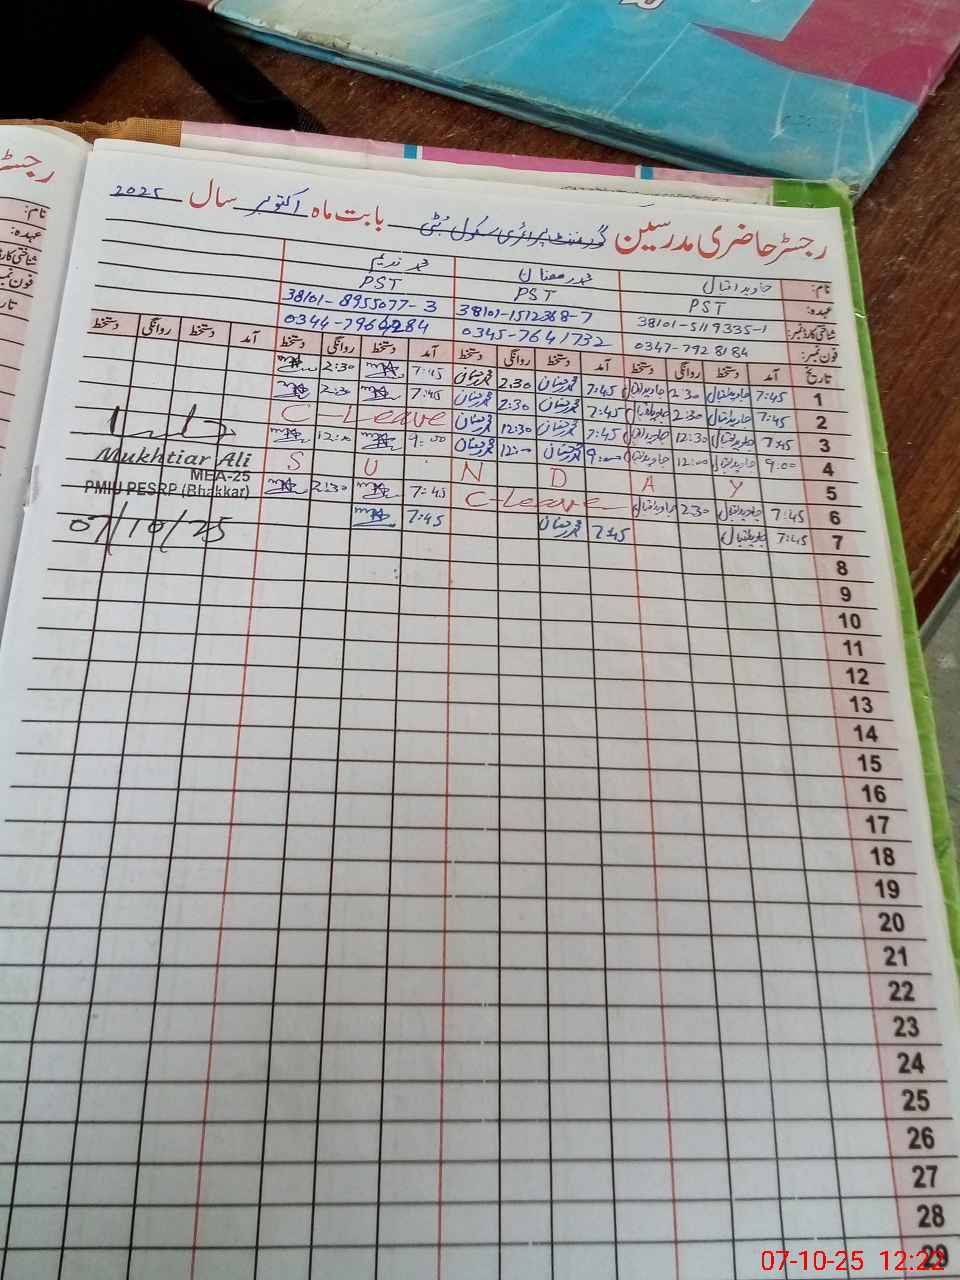 رجسٹر حاضری مدرسین گورنمنٹ پرائمری سکول بابت ماہ اکتوبر سال 2025
نام: جاوید اقبال محمد رمضان محمد
عہدہ: PST PST PST
شناختی کارڈ نمبر: 38101-5119335-1 38101-1512368-7 38101-8955077-3
فون نمبر: 0347-7928184 0345-7641732
تاریخ آمد دستخط روانگی دستخط آمد دستخط روانگی دستخط آمد دستخط روانگی دستخط آمد دستخط روانگی دستخط
1 7:45 جاوید اقبال 2:30 جاوید اقبال 7:45 محمد رمضان 2:30 محمد رمضان 7:45 2:30
2 7:45 جاوید اقبال 2:30 جاوید اقبال 7:45 محمد رمضان 2:30 محمد رمضان 7:45 2:30
3 7:45 جاوید اقبال 12:30 جاوید اقبال 7:45 محمد رمضان 12:30 محمد رمضان C-Leave
4 9:00 جاوید اقبال 12:00 جاوید اقبال 9:00 محمد رمضان 12:00 محمد رمضان 9:00 12:00
5 S U N D A Y
6 7:45 جاوید اقبال 2:30 جاوید اقبال C-Leave 7:45 2:30
7 7:45 جاوید اقبال 7:45 محمد رمضان 7:45
Mukhtiar Ali
MEA-25
PMIU PESRP (Bhakkar)
07/10/25
8
9
10
11
12
13
14
15
16
17
18
19
20
21
22
23
24
25
26
27
28
29
رجسٹر
نام:
عہدہ:
شناختی کارڈ
فون نمبر
07-10-25 12:22